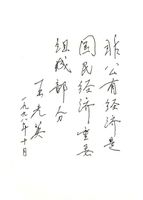 非公有经济是
国民经济重要
组成部分
王光英
一九九八年十月